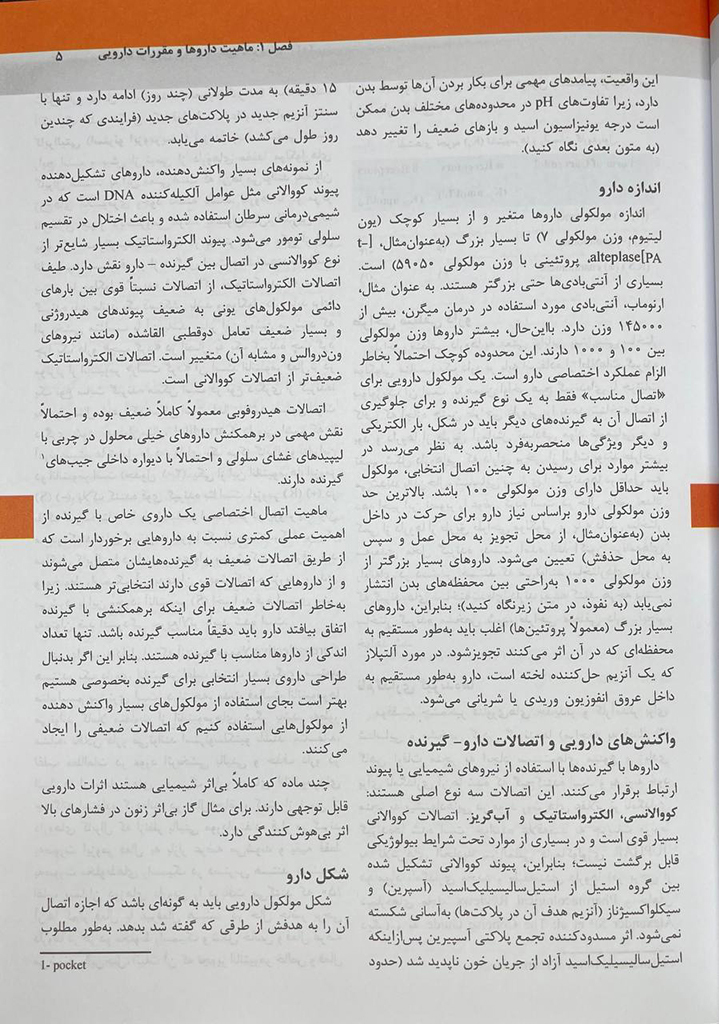 فصل ۱: ماهیت داروها و مقررات دارویی ۵
این واقعیت، پیامدهای مهمی برای بکار بردن آن‌ها توسط بدن
دارد، زیرا تفاوت‌های pH در محدوده‌های مختلف بدن ممکن
است درجه یونیزاسیون اسید و بازهای ضعیف را تغییر دهد
(به متون بعدی نگاه کنید).
اندازه دارو
اندازه مولکولی داروها متغیر و از بسیار کوچک (یون
لیتیوم، وزن مولکولی ۷) تا بسیار بزرگ (به‌عنوان‌مثال، [t–
alteplase[PA، پروتئینی با وزن مولکولی ۵۹۰۵۰) است.
بسیاری از آنتی‌بادی‌ها حتی بزرگتر هستند. به عنوان مثال،
ارنوماب، آنتی‌بادی مورد استفاده در درمان میگرن، بیش از
۱۴۵۰۰۰ وزن دارد. بااین‌حال، بیشتر داروها وزن مولکولی
بین ۱۰۰ و ۱۰۰۰ دارند. این محدوده کوچک احتمالاً بخاطر
الزام عملکرد اختصاصی دارو است. یک مولکول دارویی برای
«اتصال مناسب» فقط به یک نوع گیرنده و برای جلوگیری
از اتصال آن به گیرنده‌های دیگر باید در شکل، بار الکتریکی
و دیگر ویژگی‌ها منحصربه‌فرد باشد. به نظر می‌رسد در
بیشتر موارد برای رسیدن به چنین اتصال انتخابی، مولکول
باید حداقل دارای وزن مولکولی ۱۰۰ باشد. بالاترین حد
وزن مولکولی دارو براساس نیاز دارو برای حرکت در داخل
بدن (به‌عنوان‌مثال، از محل تجویز به محل عمل و سپس
به محل حذفش) تعیین می‌شود. داروهای بسیار بزرگتر از
وزن مولکولی ۱۰۰۰ به‌راحتی بین محفظه‌های بدن انتشار
نمی‌یابد (به نفوذ، در متن زیرنگاه کنید)؛ بنابراین، داروهای
بسیار بزرگ (معمولاً پروتئین‌ها) اغلب باید به‌طور مستقیم به
محفظه‌ای که در آن اثر می‌کنند تجویزشود. در مورد آلتپلاز
که یک آنزیم حل‌کننده لخته است، دارو به‌طور مستقیم به
داخل عروق انفوزیون وریدی یا شریانی می‌شود.
واکنش‌های دارویی و اتصالات دارو- گیرنده
داروها با گیرنده‌ها با استفاده از نیروهای شیمیایی یا پیوند
ارتباط برقرار می‌کنند. این اتصالات سه نوع اصلی هستند:
کووالانسی، الکترواستاتیک و آب‌گریز. اتصالات کووالانی
بسیار قوی است و در بسیاری از موارد تحت شرایط بیولوژیکی
قابل برگشت نیست؛ بنابراین، پیوند کووالانی تشکیل شده
بین گروه استیل از استیل‌سالیسیلیک‌اسید (آسپرین) و
سیکلواکسیژناز (آنزیم هدف آن در پلاکت‌ها) به‌آسانی شکسته
نمی‌شود. اثر مسدودکننده تجمع پلاکتی آسپیرین پس‌ازاینکه
استیل‌سالیسیلیک‌اسید آزاد از جریان خون ناپدید شد (حدود
۱۵ دقیقه) به مدت طولانی (چند روز) ادامه دارد و تنها با
سنتز آنزیم جدید در پلاکت‌های جدید (فرایندی که چندین
روز طول می‌کشد) خاتمه می‌یابد.
از نمونه‌های بسیار واکنش‌دهنده، داروهای تشکیل‌دهنده
پیوند کووالانی مثل عوامل آلکیله‌کننده DNA است که در
شیمی‌درمانی سرطان استفاده شده و باعث اختلال در تقسیم
سلولی تومور می‌شود. پیوند الکترواستاتیک بسیار شایع‌تر از
نوع کووالانسی در اتصال بین گیرنده – دارو نقش دارد. طیف
اتصالات الکترواستاتیک، از اتصالات نسبتاً قوی بین بارهای
دائمی مولکول‌های یونی به ضعیف پیوندهای هیدروژنی
و بسیار ضعیف تعامل دوقطبی القاشده (مانند نیروهای
ون‌دروالس و مشابه آن) متغییر است. اتصالات الکترواستاتیک
ضعیف‌تر از اتصالات کووالانی است.
اتصالات هیدروفوبی معمولاً کاملاً ضعیف بوده و احتمالاً
نقش مهمی در برهمکنش داروهای خیلی محلول در چربی با
لیپیدهای غشای سلولی و احتمالاً با دیواره داخلی جیب‌های۱
گیرنده دارند.
ماهیت اتصال اختصاصی یک داروی خاص با گیرنده از
اهمیت عملی کمتری نسبت به داروهایی برخوردار است که
از طریق اتصالات ضعیف به گیرنده‌هایشان متصل می‌شوند
و از داروهایی که اتصالات قوی دارند انتخابی‌تر هستند. زیرا
به‌خاطر اتصالات ضعیف برای اینکه برهمکنشی با گیرنده
اتفاق بیافتد دارو باید دقیقاً مناسب گیرنده باشد. تنها تعداد
اندکی از داروها مناسب با گیرنده هستند. بنابر این اگر بدنبال
طراحی داروی بسیار انتخابی برای گیرنده بخصوصی هستیم
بهتر است بجای استفاده از مولکول‌های بسیار واکنش دهنده
از مولکول‌هایی استفاده کنیم که اتصالات ضعیفی را ایجاد
می‌کنند.
چند ماده که کاملاً بی‌اثر شیمیایی هستند اثرات دارویی
قابل توجهی دارند. برای مثال گاز بی‌اثر زنون در فشارهای بالا
اثر بی‌هوش‌کنندگی دارد.
شکل دارو
شکل مولکول دارویی باید به گونه‌ای باشد که اجازه اتصال
آن را به هدفش از طرقی که گفته شد بدهد. به‌طور مطلوب
1- pocket